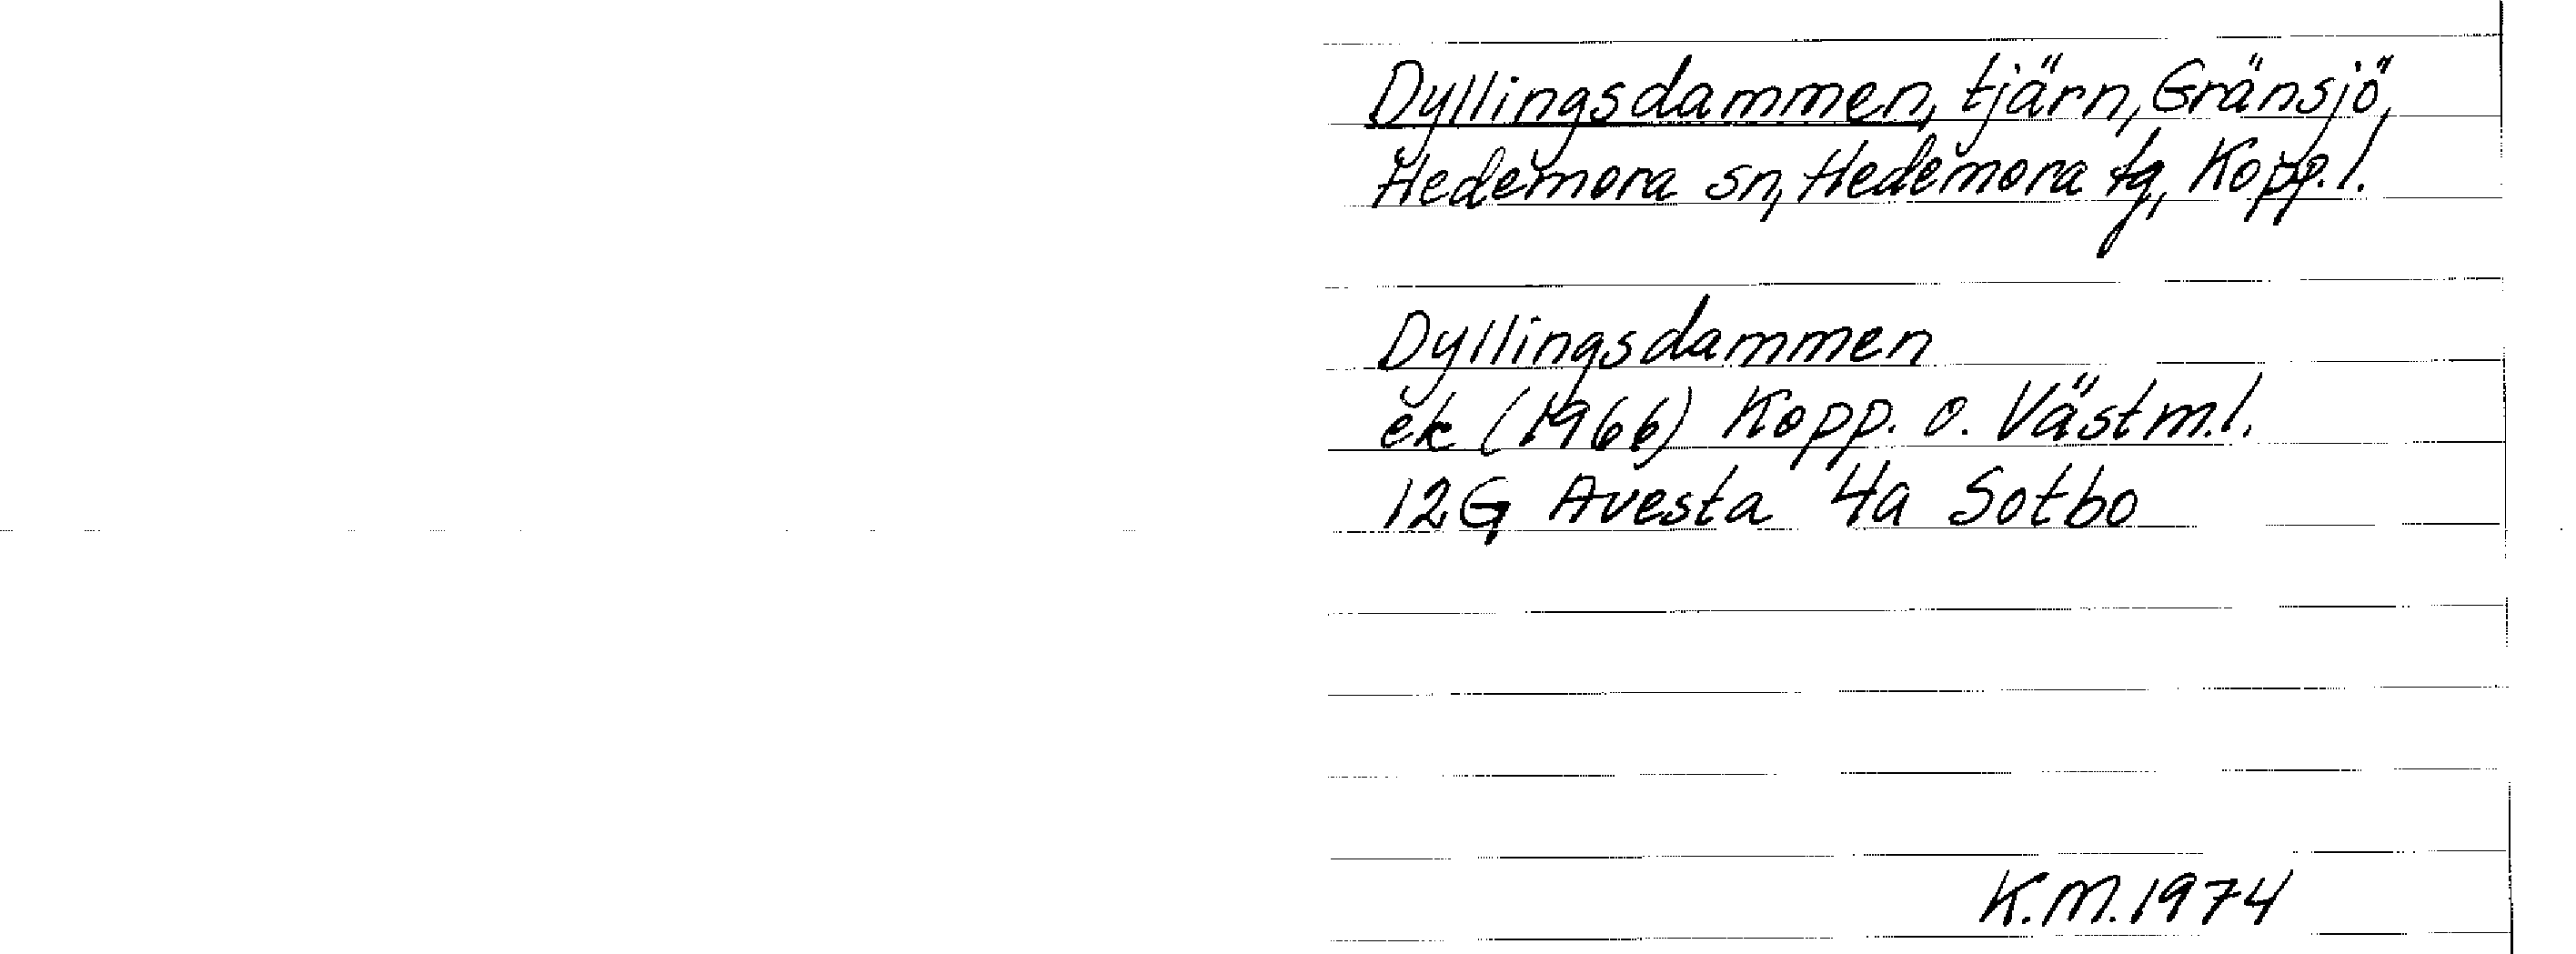 Dyllingsdammen, tjärn, Gränsjö,
Hedemora sn, Hedemora tg, Kopp.l.
Dyllingsdammen
ek (1966) Kopp. o. Västm.l.
12G Avesta 4a Sotbo
K.M.1974